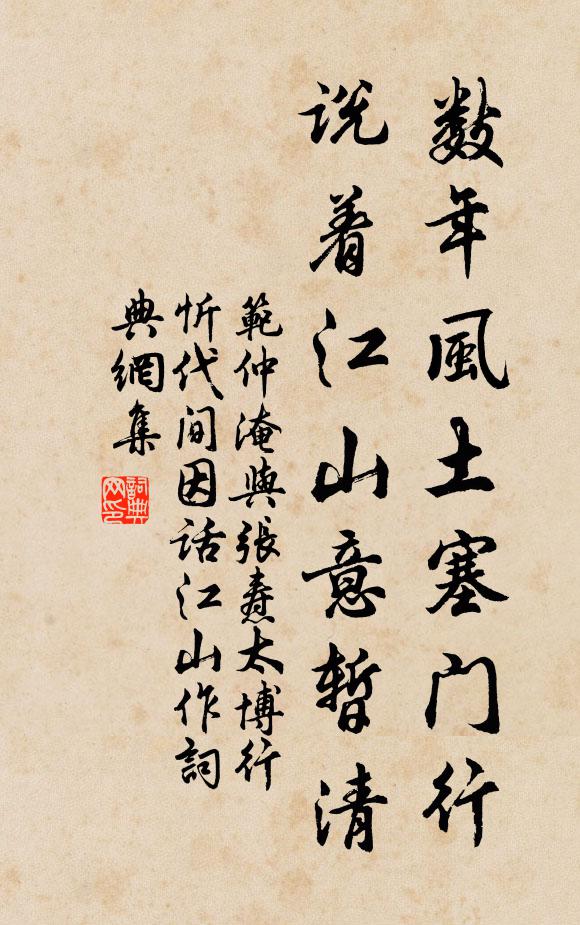 數年風土塞門行
説着江山意暫清
範仲淹與張燾太博行
忻代間因話江山作詞
典網集
詞典
网印